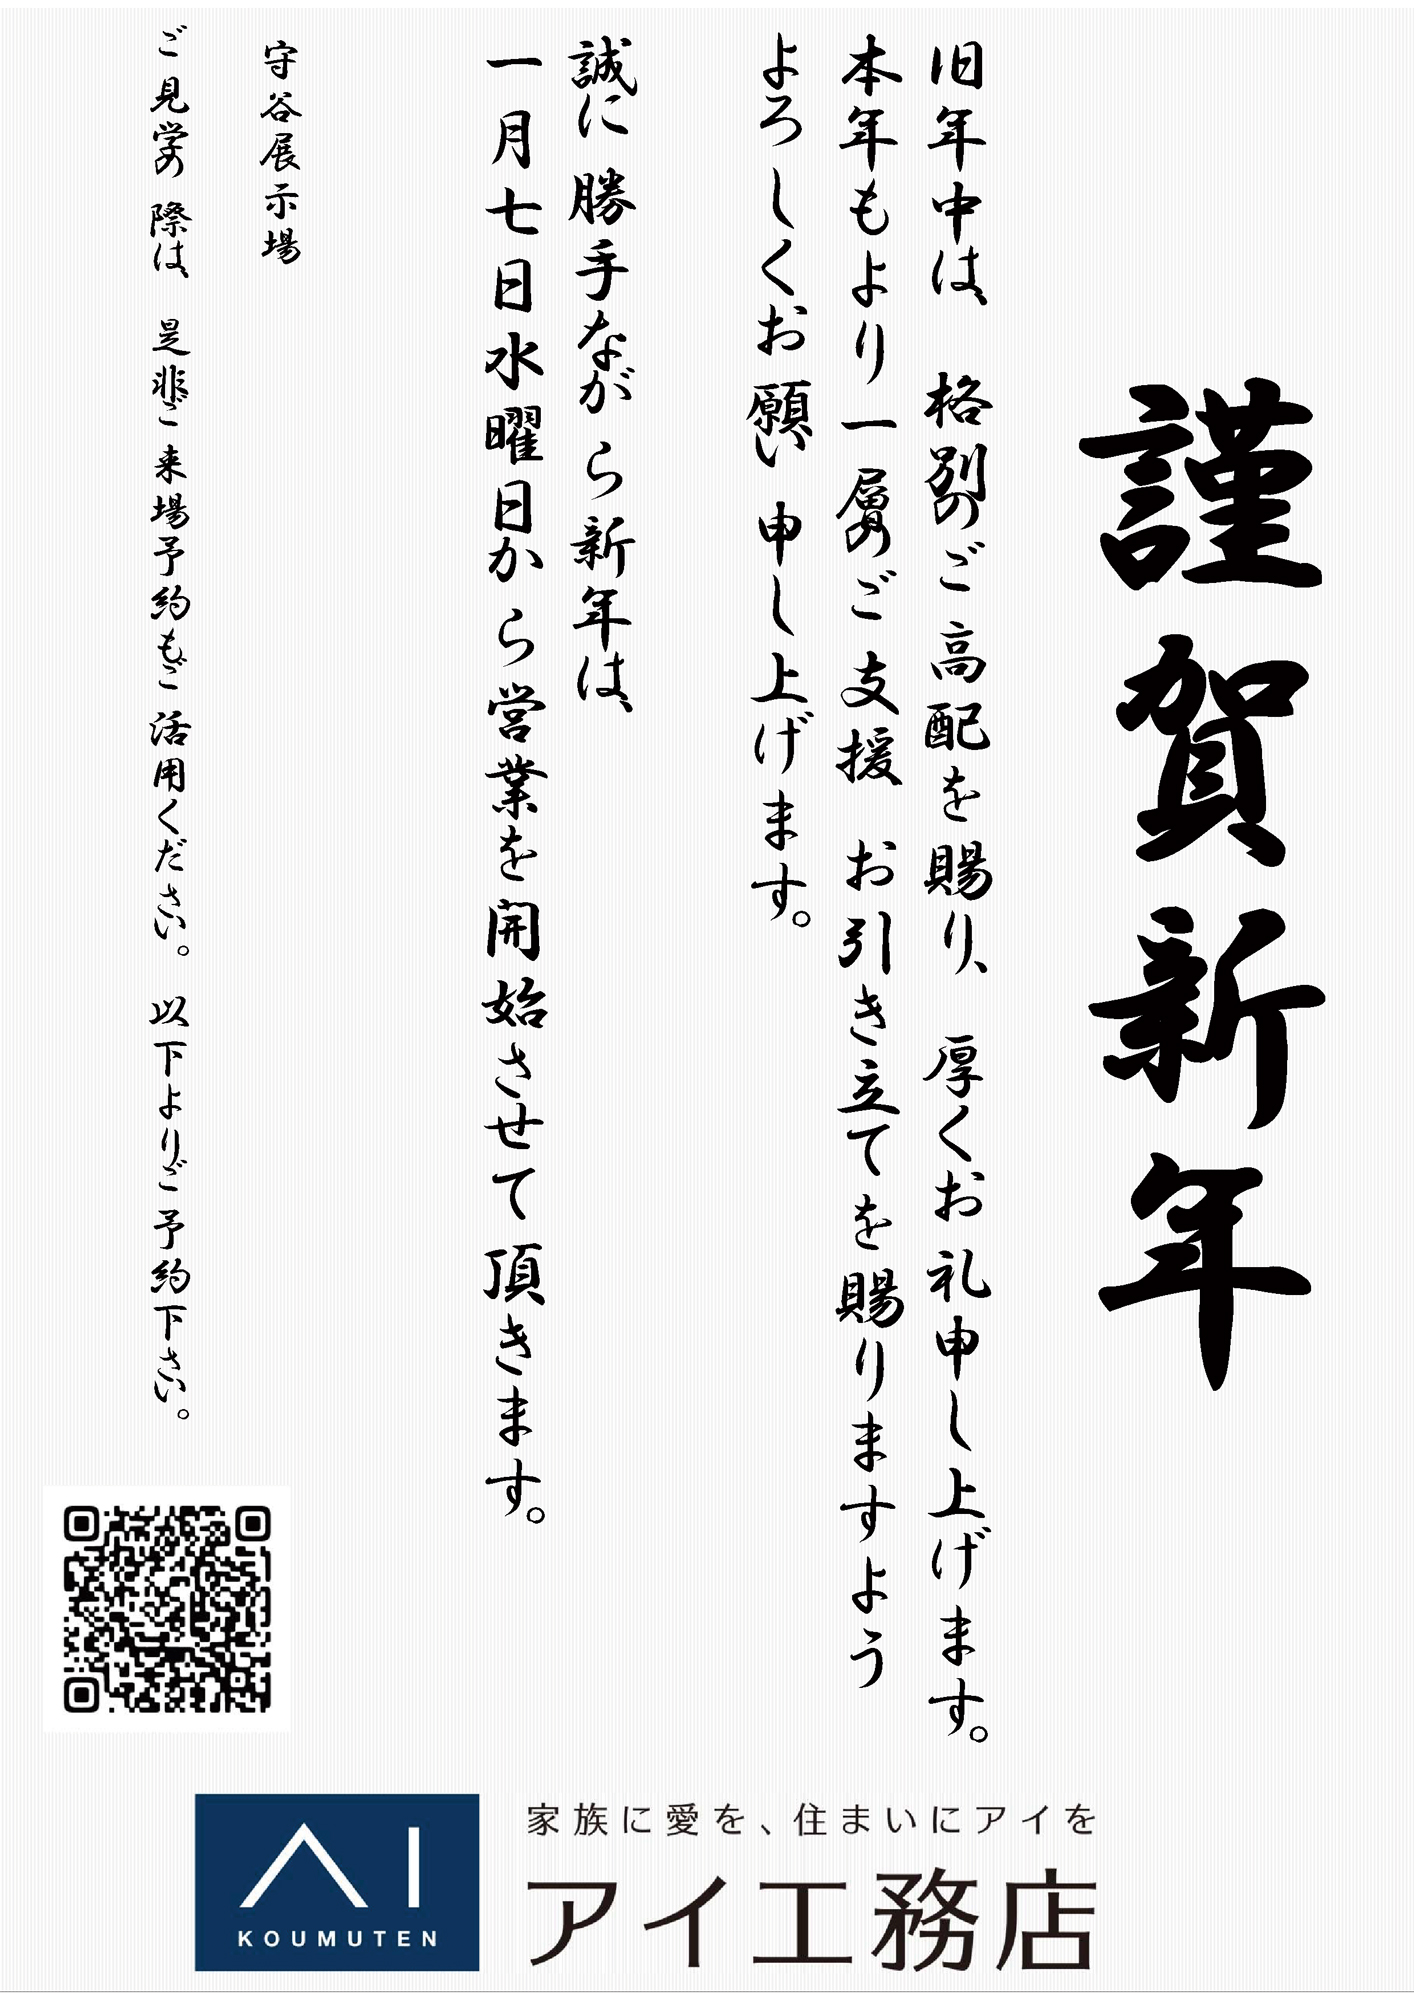 謹賀新年
旧年中は、格別のご高配を賜り、厚くお礼申し上げます。
本年もより一層のご支援 お引き立てを賜りますよう
よろしくお願い申し上げます。
誠に勝手ながら新年は、
一月七日水曜日から営業を開始させて頂きます。
守谷展示場
ご見学の際は、是非ご来場予約もご活用ください。以下よりご予約下さい。
AI
KOUMUTEN
家族に愛を、住まいにアイを
アイ工務店